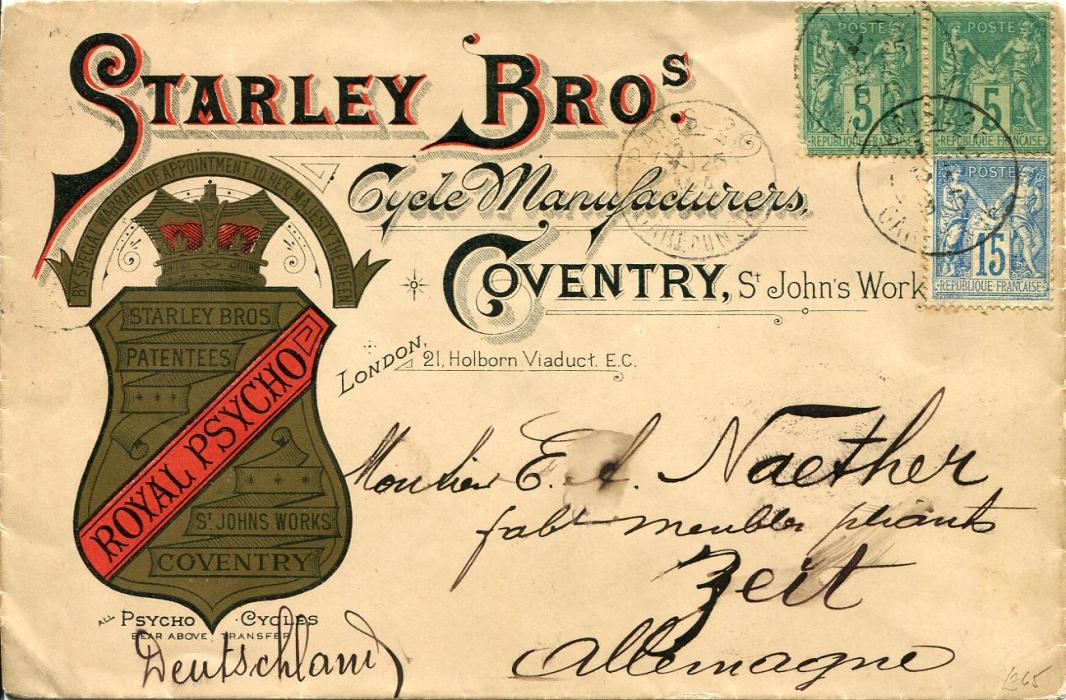 STARLEY BROS.
Cycle Manufacturers,
COVENTRY, St John's Work
LONDON, 21, Holborn Viaduct. E.C.
BY SPECIAL WARRANT OF APPOINTMENT TO HER MAJESTY THE QUEEN
STARLEY BROS
PATENTEES
ROYAL PSYCHO
ST JOHNS WORKS
COVENTRY
ALL PSYCHO CYCLES
BEAR ABOVE TRANSFER
POSTE
5
REPUBLIQUE FRANÇAISE
POSTE
5
REPUBLIQUE FRANÇAISE
POSTE
15
REPUBLIQUE FRANÇAISE
PARIS
Monsieur E. A. Naether
fabt meubles pliants
Zeit
Allemagne
Deutschland
1265